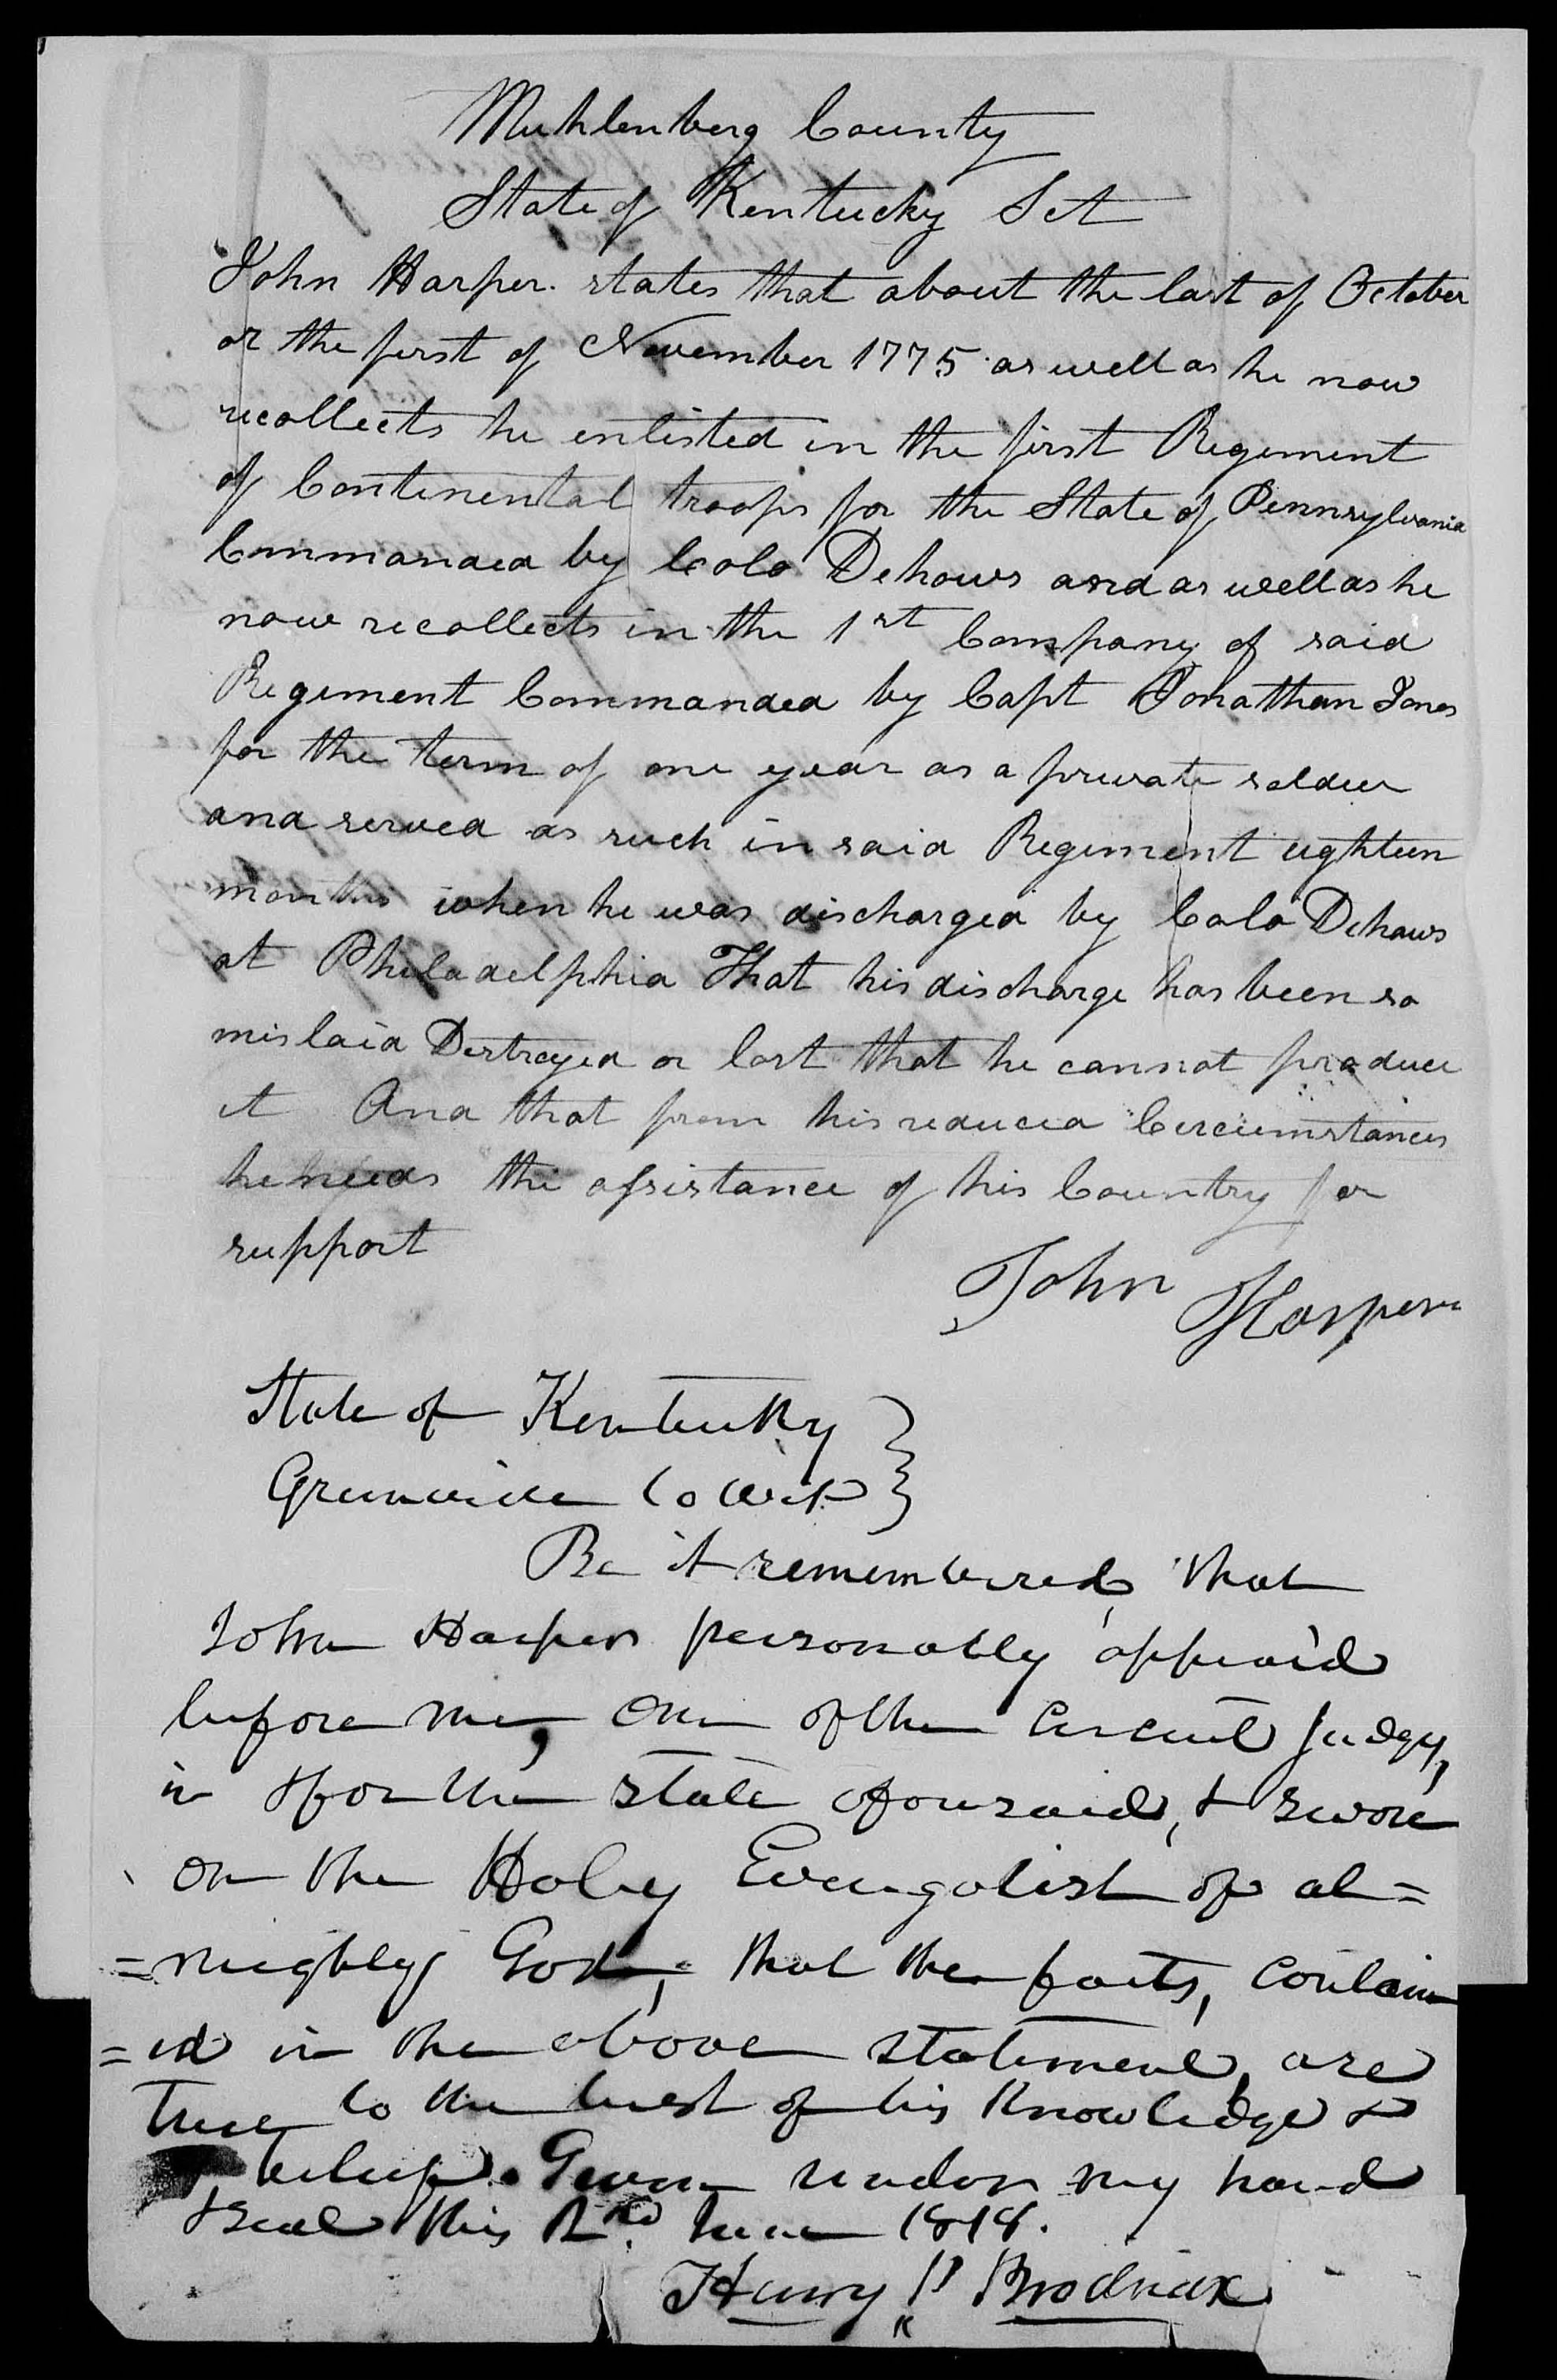 Muhlenberg County
State of Kentucky Sct
John Harper. states that about the last of October
or the first of November 1775 as well as he now
recollects he enlisted in the first Regiment
of Continental troops for the State of Pennsylvania
Commanded by Colo Dehaws and as well as he
now recollects in the 1st Company of said
Regiment Commanded by Capt Jonathan Jones
for the term of one year as a private soldier
and served as such in said Regiment eighteen
months when he was discharged by Colo Dehaws
at Philadelphia That his discharge has been so
mislaid Destroyed or lost that he cannot produce
it And that from his reduced Circumstances
he needs the assistance of his Country for
support
John Harper
State of Kentucky }
Greenville Co to wit }
Be it remembered, that
John Harper personally appeard
before me, One of the Circuit Judges,
in & for the state aforesaid, & swore
on the Holy Evangelist of al=
=mighty God, that the facts, contain
=ed in the above statement, are
True to the best of his Knowledge &
belief. Given under my hand
& seal this 2nd. June 1818.
Henry P Brodnax